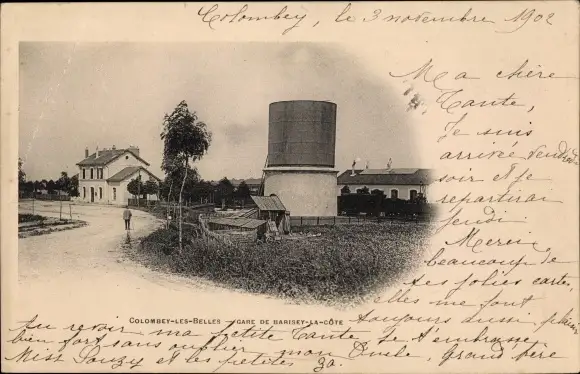 Colombey, le 3 novembre 1902
Ma chère
Tante,
Je suis
arrivée vendredi
soir et je
repartirai
jeudi.
Merci
beaucoup de
tes jolies cartes,
elles me font
toujours aussi plaisir
COLOMBEY-LES-BELLES GARE DE BARISEY-LA-CÔTE
Au revoir ma petite Tante je t'embrasse
bien fort sans oublier mon Oncle, Grand père
Miss et les petites